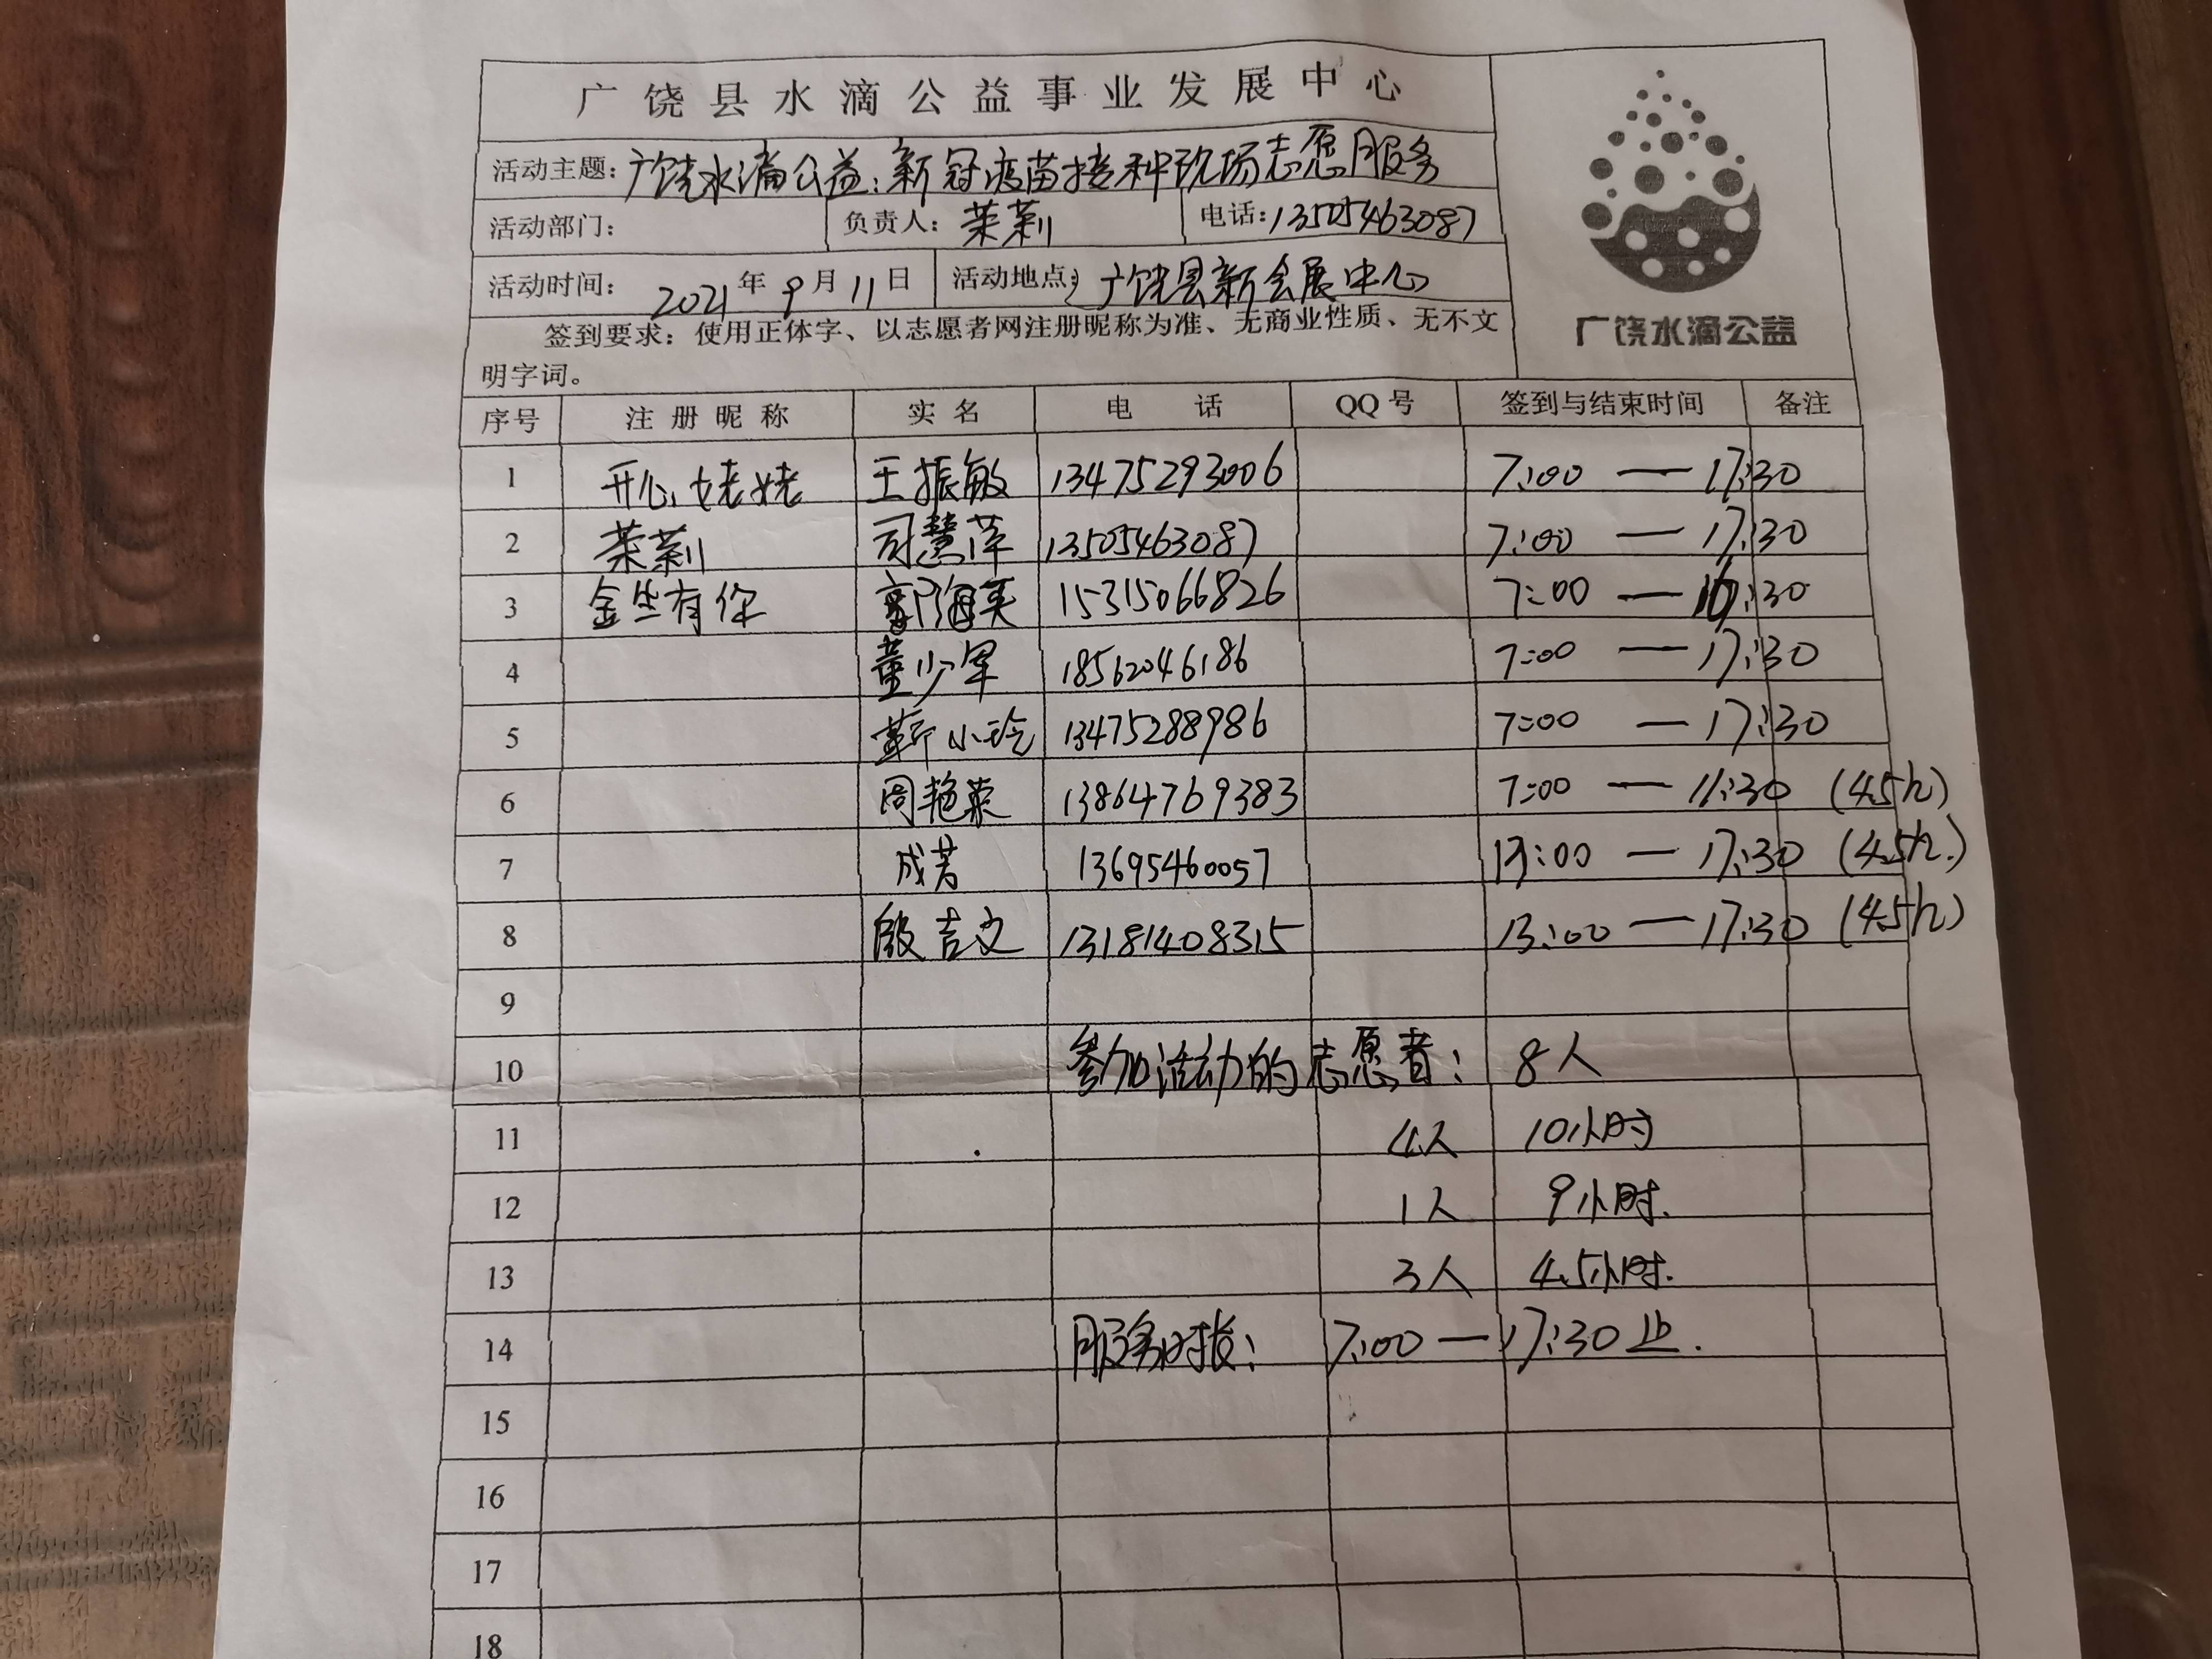 广饶县水滴公益事业发展中心
活动主题：广饶水滴公益：新冠疫苗接种现场志愿服务
活动部门： 负责人：茉莉 电话：13505463087
活动时间： 2021年9月11日 活动地点：广饶县新会展中心
签到要求：使用正体字、以志愿者网注册昵称为准、无商业性质、无不文
明字词。
广饶水滴公益
序号 注册昵称 实名 电话 QQ号 签到与结束时间 备注
1 开心姥姥 王振敏 13475293006 7:00 — 17:30
2 茉莉 司慧萍 13505463087 7:00 — 17:30
3 金生有你 郭海英 15315066826 7:00 — 16:30
4 董少军 18562046186 7:00 — 17:30
5 靳小玲 13475288986 7:00 — 17:30
6 周艳荣 13864769383 7:00 — 11:30 (4.5h)
7 成芳 13695460057 13:00 — 17:30 (4.5h.)
8 殷吉文 13181408315 13:00 — 17:30 (4.5h)
9
10 参加活动的志愿者： 8人
11 4人 10小时
12 1人 9小时.
13 3人 4.5小时.
14 服务时长： 7:00 — 17:30止.
15
16
17
18